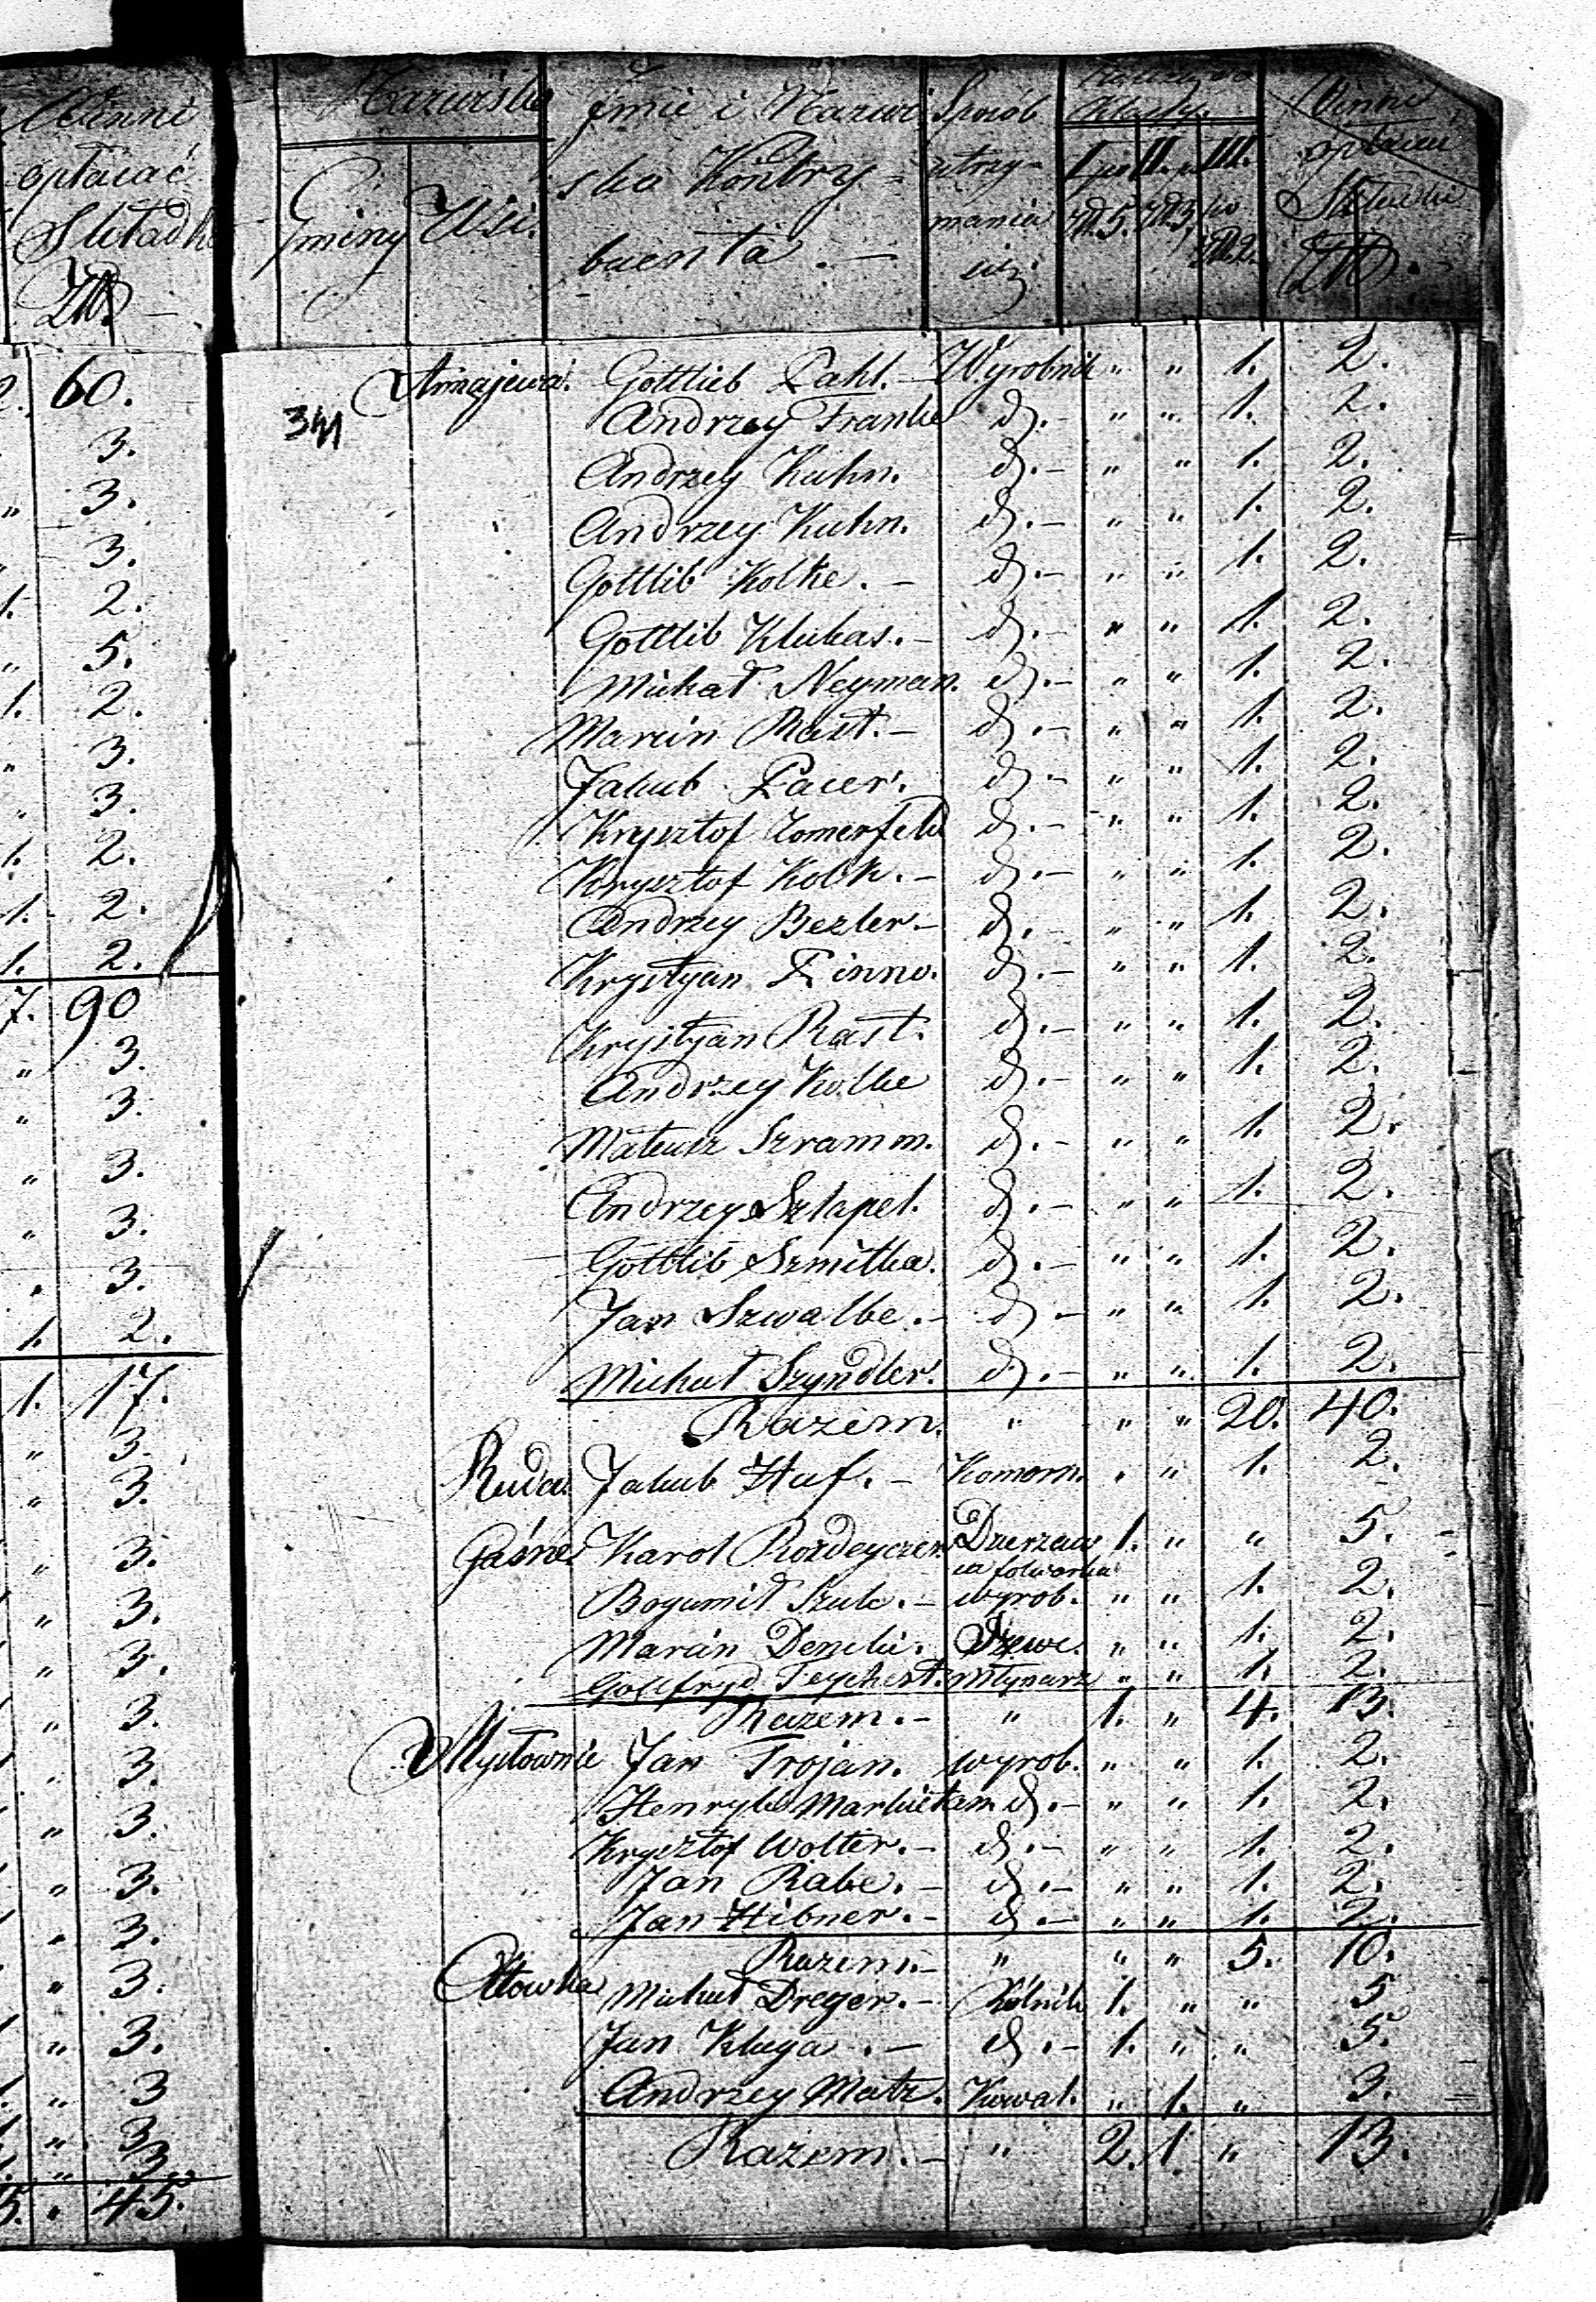 Winni
opłacać
Składkę
Złł.
60.
3.
" 3.
3.
1. 2.
" 5.
1. 2.
" 3.
" 3.
1. 2.
1. 2.
1. 2.
7. 90
" 3.
" 3.
" 3.
" 3.
" 3.
1. 2.
1. 17.
" 3.
" 3.
" 3.
" 3.
" 3.
" 3.
" 3.
" 3.
" 3.
" 3.
" 3.
" 3.
" 3
" 3.
" 3
5. " 45.
Nazwisko Imie i Nazwi Sposób Klassy. Winni
Gminy Wsi. ska Kontry= utrzy= I po II. p. III. opłacać
buenta. — mania Zł. 5. Zł. 3. po Składki
się Zł. 2. Złł.
341
Gottlieb Pahl. — Wyrobnik " " 1. 2.
Andrzey Franke d. — " " 1. 2.
Andrzey Kuhn. d. — " " 1. 2.
Andrzey Kuhn. d. — " " 1. 2.
Gottlib Kolke. — d. — " " 1. 2.
Gottlib Klukas. — d. — " " 1. 2.
Michał Neyman. d. — " " 1. 2.
Marcin Rast. — d. — " " 1. 2.
Jakub Pacer. d. — " " 1. 2.
Krysztof Zomerfeld d. — " " 1. 2.
Krysztof Kolk. — d. — " " 1. 2.
Andrzey Bezler — d. — " " 1. 2.
Krystyan Pinno. d. — " " 1. 2.
Krystyan Rast. d. — " " 1. 2.
Andrzey Kolke d. — " " 1. 2.
Mateusz Szramm. d. — " " 1. 2.
Andrzey Sztapel. d. — " " 1. 2.
Gottlib Szmitka. d. — " " 1. 2.
Jan Szwalbe. — d. — " " 1. 2.
Michał Szyndler. d. — " " 1. 2.
Razem. " " " 20. 40.
Ruda Jakub Huf. — Komorn. " " 1. 2.
Gaśne Karol Rozdeyczer Dzierzaw 1. " " 5.
ca folwarku
Bogumił Szulc. — wyrob. " " 1. 2.
Marcin Denelii. Szewc. " " 1. 2.
Gottfryd Teychert. Młynarz " " 1. 2.
Razem. — " 1. " 4. 13.
Jan Trojan. wyrob. " " 1. 2.
Henryk d. — " " 1. 2.
Krysztof Wolter. — d. — " " 1. 2.
Jan Rabe. — d. — " " 1. 2.
Jan Hibner. — d. — " " 1. 2.
Razem. — " " " 5. 10.
Michał Dreger. — Rólnik 1. " " 5
Jan Kluga. — d. — 1. " " 5.
Andrzey Matz. Kowal. " 1. " 3.
Razem. — " 2. 1. " 13.